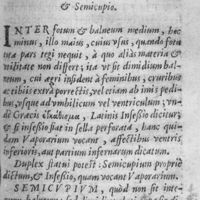 & Semicupio.
INTER fotum & balneum medium, hoc
minus, illo maius, cuius usus, quando fotu
ra pars tegi nequit, à quo aliàs materia &
nilitate non differt; ita ut sit dimidium bal-
neum, cui ægri insident à feminibus, cruribus
acetibiis extrà porrectis, vel etiam ab imis pedi-
bus, vsque ad vmbilicum vel ventriculum; vn-
dè Græcis Ἐγκάθισμα, Latinis Insessio dicitur;
& si insessio fiat in sella perforata, hanc qui-
dam Vaporarium vocant, affectibus ventris
inferioris, aut partium infernarum dicatum.
Duplex statui potest: Semicupium propriè
dictum, & Insessio, quam vocant Vaporarium.
SEMICVPIVM, quòd non sit inte-